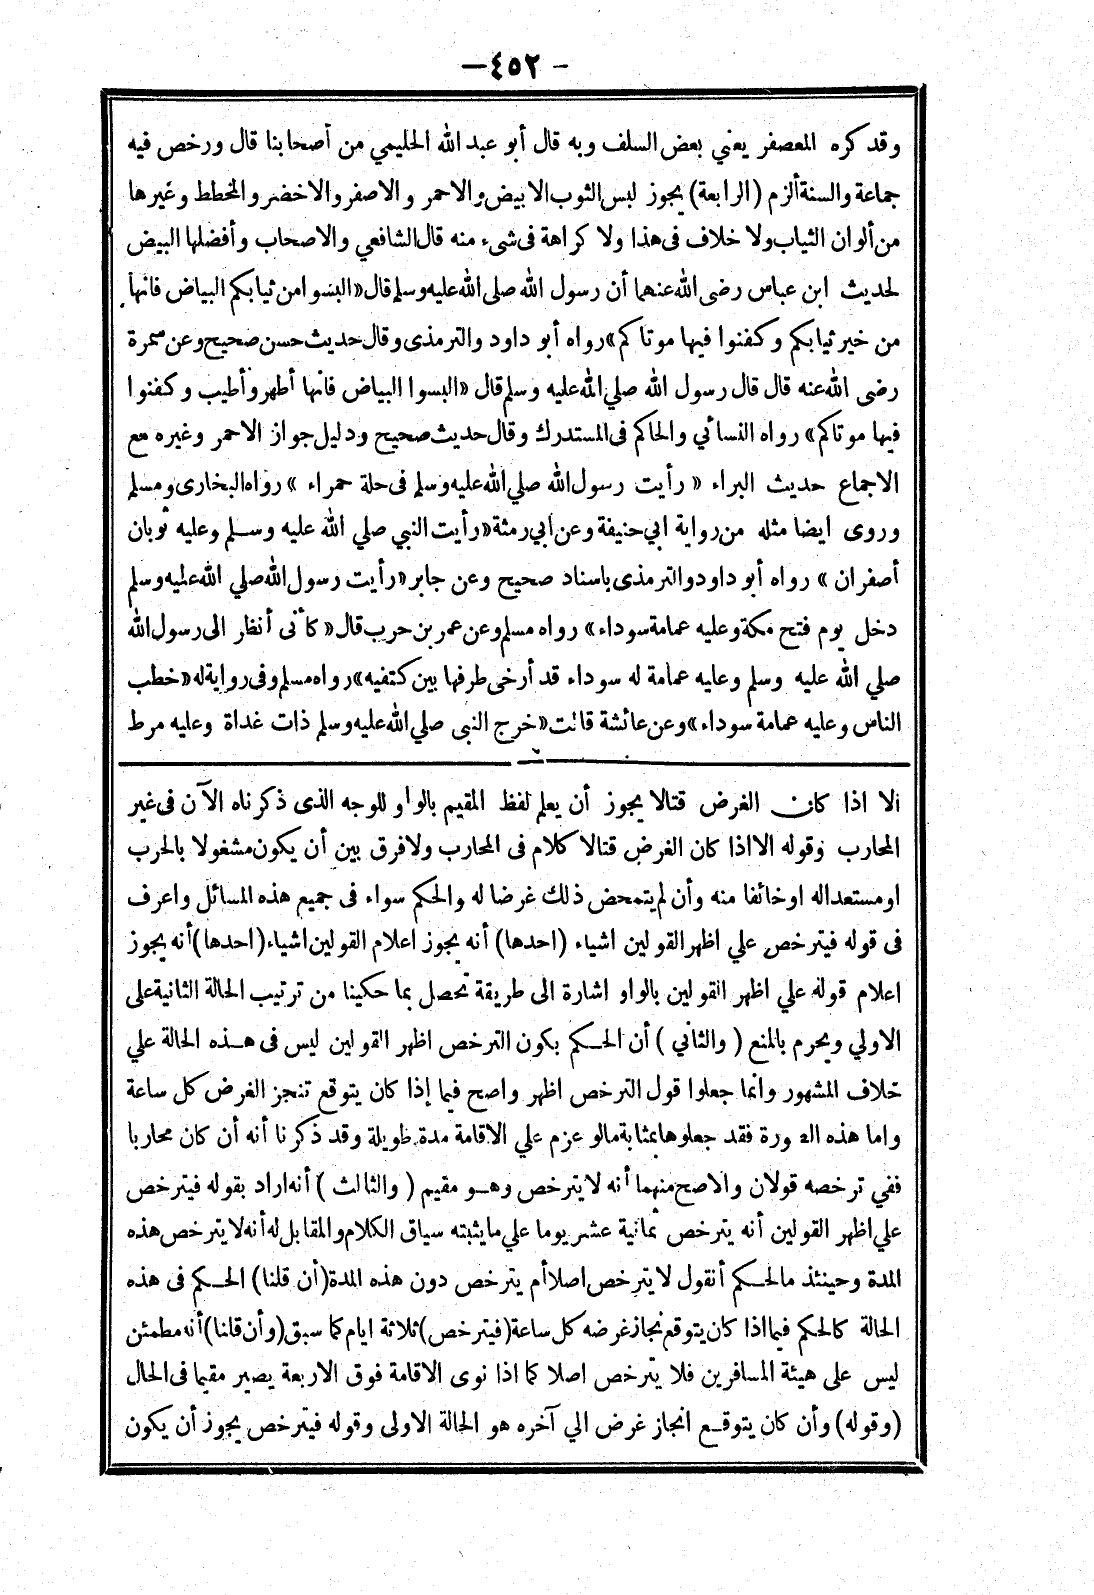 - ٤٥٢ -
وقد كره المعصفر يعني بعض السلف وبه قال أبو عبد الله الحليمي من أصحابنا قال ورخص فيه
جماعة والسنة ألزم (الرابعة) يجوز لبس الثوب الابيض والاحمر والاصفر والاخضر والمخطط وغيرها
من ألوان الثياب ولا خلاف فى هذا ولا كراهة فى شىء منه قال الشافعي والاصحاب وأفضلها البيض
لحديث ابن عباس رضى الله عنهما أن رسول الله صلى الله عليه وسلم قال «البسوا من ثيابكم البياض فانها
من خير ثيابكم وكفنوا فيها موتاكم» رواه أبو داود والترمذى وقال حديث حسن صحيح وعن سمرة
رضى الله عنه قال قال رسول الله صلي الله عليه وسلم قال «البسوا البياض فانها أطهر وأطيب وكفنوا
فيها موتاكم» رواه النسائي والحاكم فى المستدرك وقال حديث صحيح ودليل جواز الاحمر وغيره مع
الاجماع حديث البراء « رأيت رسول الله صلي الله عليه وسلم فى حلة حمراء » رواه البخارى ومسلم
وروى ايضا مثله من رواية ابي حنيفة وعن ابي رمثة «رأيت النبي صلي الله عليه وسلم وعليه ثوبان
أصفران » رواه أبو داود والترمذى باسناد صحيح وعن جابر «رأيت رسول الله صلي الله عليه وسلم
دخل يوم فتح مكة وعليه عمامة سوداء» رواه مسلم وعن عمر بن حرب قال «كأنى أنظر الى رسول الله
صلي الله عليه وسلم وعليه عمامة له سوداء قد أرخى طرفها بين كتفيه» رواه مسلم وفى رواية له «خطب
الناس وعليه عمامة سوداء» وعن عائشة قالت «خرج النبى صلي الله عليه وسلم ذات غداة وعليه مرط
الا اذا كان الغرض قتالا يجوز أن يعلم لفظ المقيم بالواو للوجه الذى ذكرناه الآن فى غير
المحارب وقوله الا اذا كان الغرض قتالا كلام فى المحارب ولا فرق بين أن يكون مشغولا بالحرب
او مستعدا له او خائفا منه وأن لم يتمحض ذلك غرضا له والحكم سواء فى جميع هذه المسائل واعرف
فى قوله فيترخص علي اظهر القولين اشياء (احدها) أنه يجوز اعلام القولين اشياء (احدها) أنه يجوز
اعلام قوله علي اظهر القولين بالواو اشارة الى طريقة تحصل بما حكينا من ترتيب الحالة الثانية على
الاولي ويحرم بالمنع ( والثاني ) أن الحكم بكون الترخص اظهر القولين ليس فى هذه الحالة علي
خلاف المشهور وانما جعلوا قول الترخص اظهر واصح فيما إذا كان يتوقع تنجز الغرض كل ساعة
واما هذه الصورة فقد جعلوها بمثابة مالو عزم علي الاقامة مدة طويلة وقد ذكرنا أنه أن كان محاربا
ففي ترخصه قولان والاصح منهما أنه لا يترخص وهو مقيم ( والثالث ) أنه اراد بقوله فيترخص
علي اظهر القولين أنه يترخص ثمانية عشر يوما علي ما يثبته سياق الكلام والمقابل له أنه لا يترخص هذه
المدة وحينئذ ما الحكم أنقول لا يترخص اصلا أم يترخص دون هذه المدة (أن قلنا) الحكم فى هذه
الحالة كالحكم فيما اذا كان يتوقع نجاز غرضه كل ساعة (فيترخص) ثلاثة ايام كما سبق (وأن قلنا) أنه مطمئن
ليس على هيئة المسافرين فلا يترخص اصلا كما اذا نوى الاقامة فوق الاربعة يصير مقيما فى الحال
(وقوله) وأن كان يتوقع انجاز غرض الي آخره هو الحالة الاولى وقوله فيترخص يجوز أن يكون